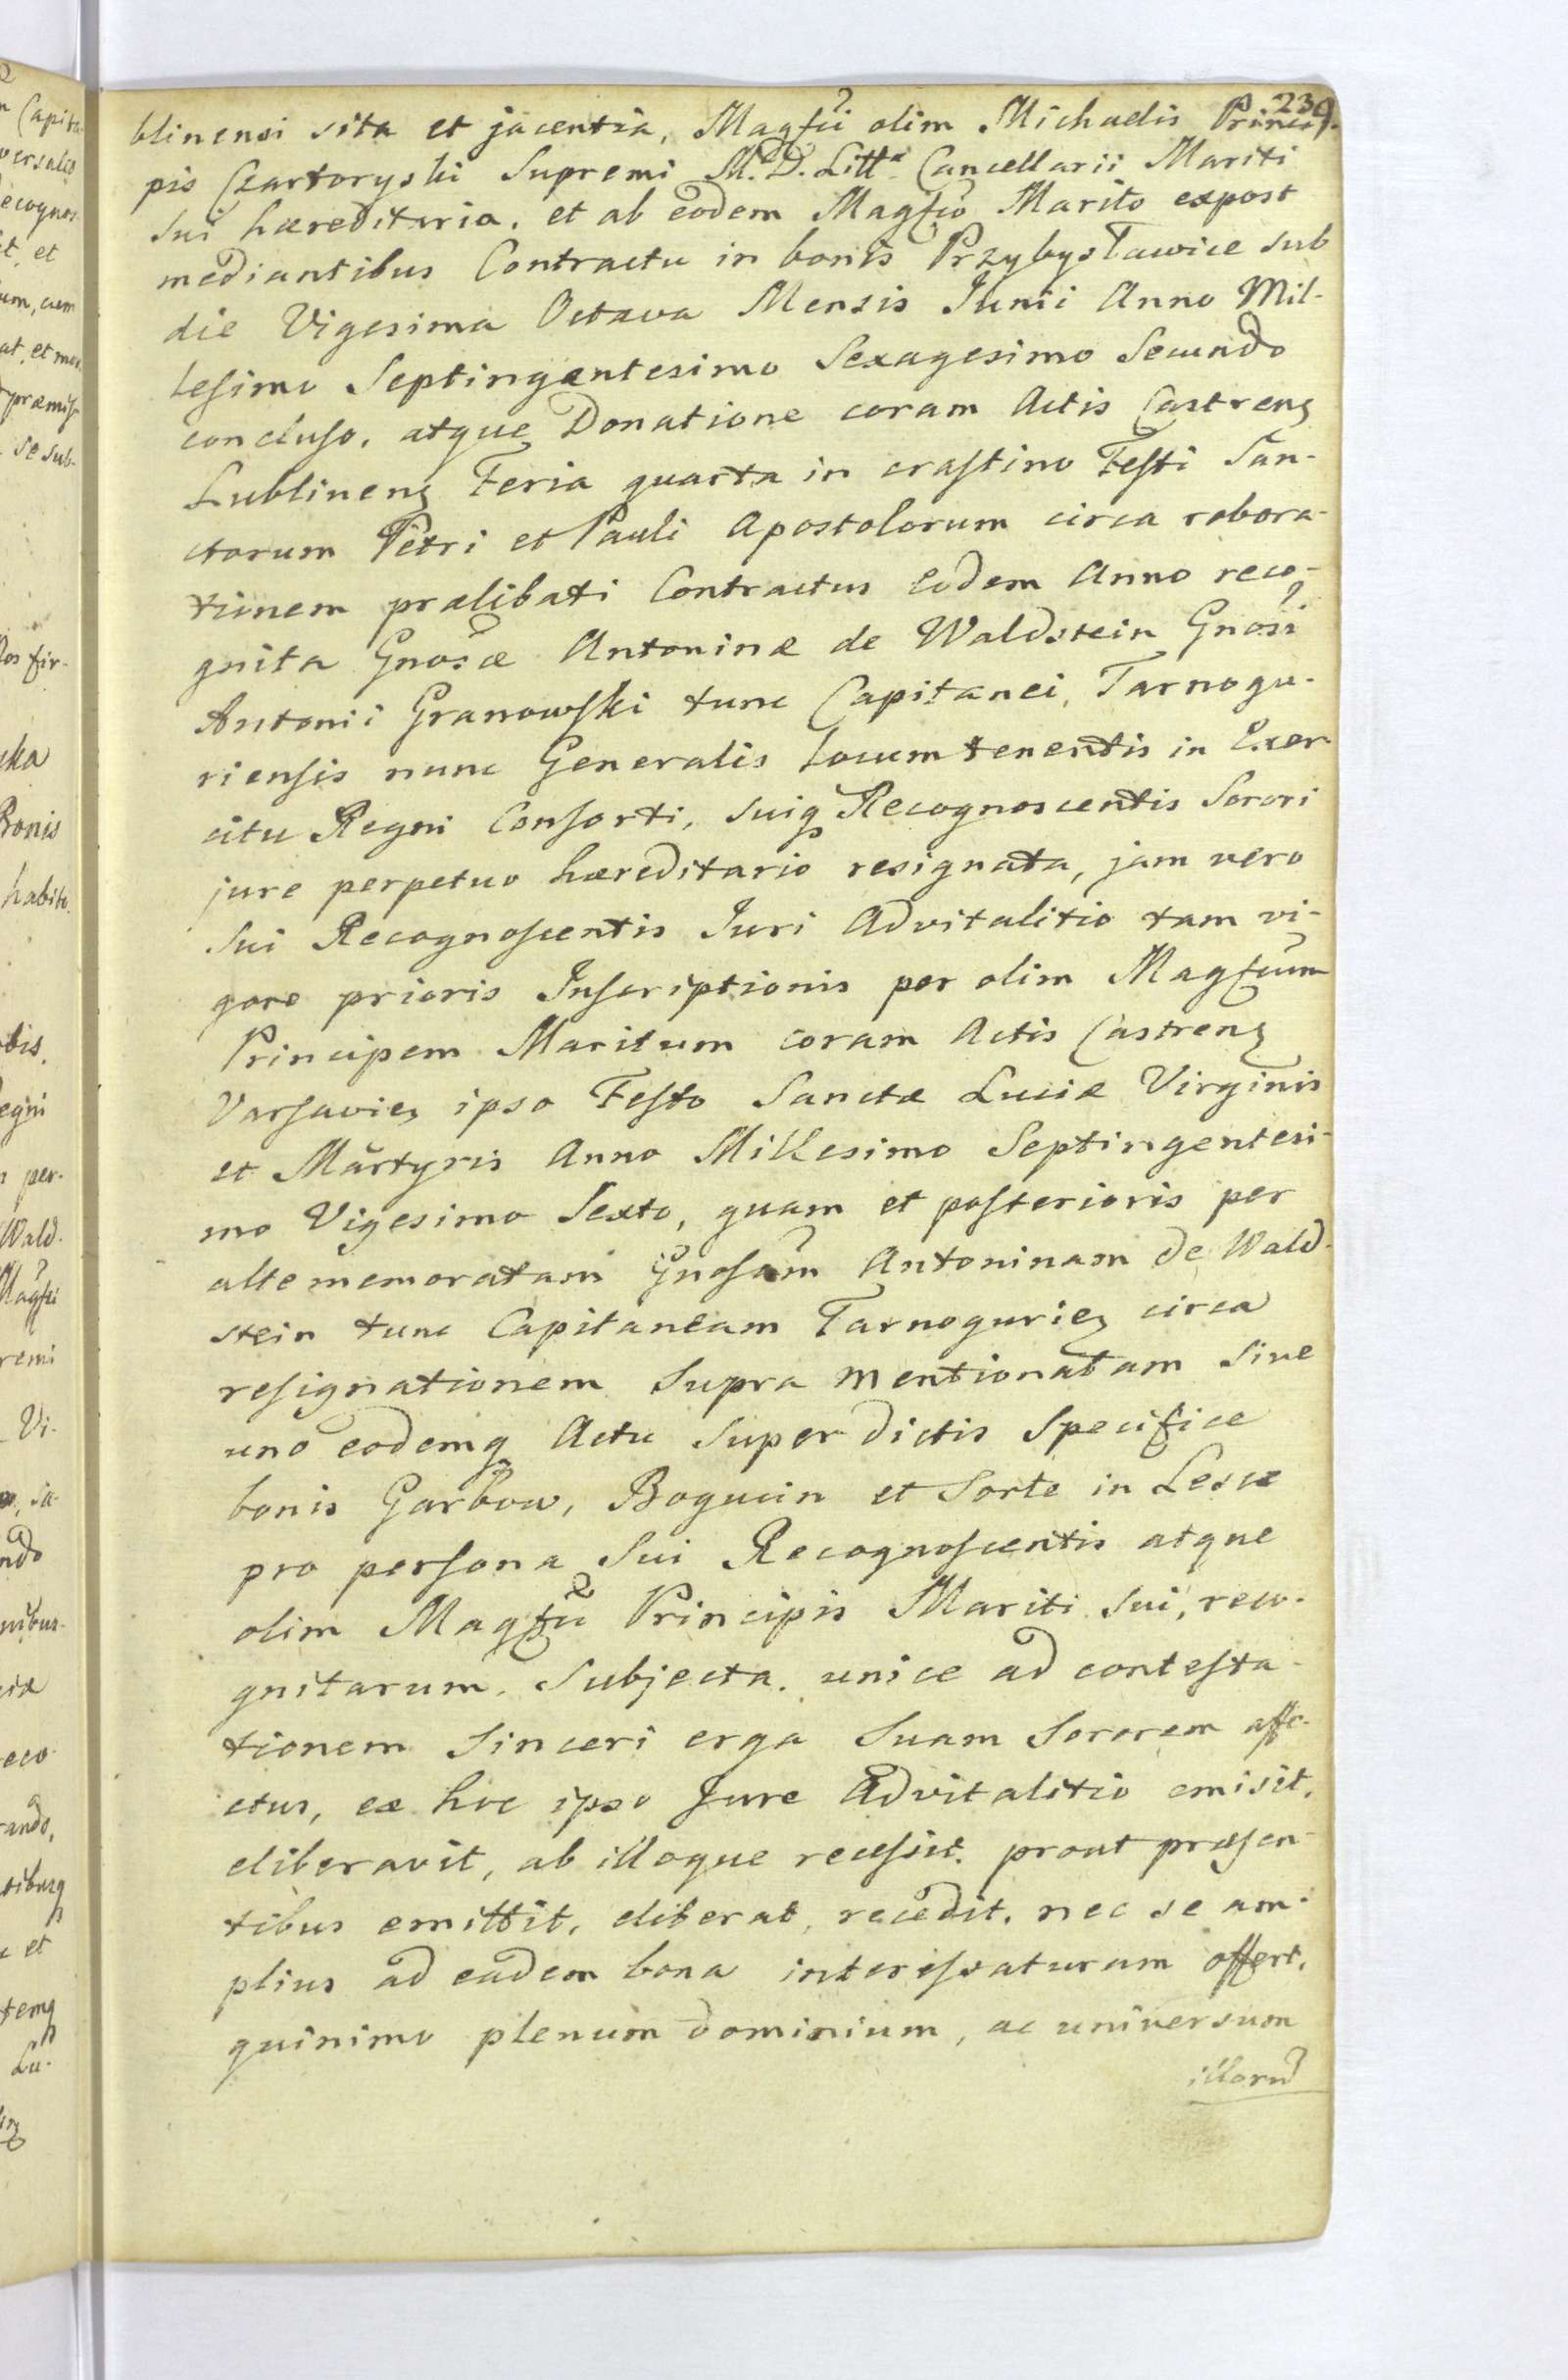 239.
blinensi sita et jacentia, Magfci olim Michaelis Princi-
pis Czartoryski Supremi M. D. Litt. Cancellarii Mariti
sui hæreditaria, et ab eodem Magfco Marito expost
mediantibus Contractu in bonis Przybysławice sub
die Vigesima Octava Mensis Junii Anno Mil-
lesimo Septingentesimo Sexagesimo Secundo
concluso, atque Donatione coram Actis Castrens
Lublinens Feria quarta in crastino Festi San-
ctorum Petri et Pauli Apostolorum circa robora-
tionem prælibati Contractus eodem Anno reco-
gnita Gnosæ Antoninæ de Waldstein Gnosi
Antonii Granowski tunc Capitanei, Tarnogu-
riensis nunc Generalis locumtenentis in Exer-
citu Regni Consorti, suiq Recognoscentis Sorori
jure perpetuo hæreditario resignata, jam vero
sui Recognoscentis Juri Advitalitio tam vi-
gore prioris Inscriptionis per olim Magfcum
Principem Maritum coram Actis Castrens
Varsavien ipso Festo Sanctæ Luciæ Virginis
et Martyris Anno Millesimo Septingentesi-
mo Vigesimo Sexto, quam et posterioris per
alte memoratam Gnosam Antoninam de Wald-
stein tunc Capitaneam Tarnogurien circa
resignationem supra mentionatam sive
uno eodemq Actu super dictis specifice
bonis Garbow, Bogucin et Sorte in Lesce
pro persona sui Recognoscentis atque
olim Magfci Principis Mariti sui, reco-
gnitarum, subjecta, unice ad contesta-
tionem sinceri erga suam Sororem affe-
ctus, ex hoc ipso Jure Advitalitio emisit,
eliberavit, ab illoque recessit, prout præsen-
tibus emittit, eliberat, recedit, nec se am-
plius ad eadem bona interessaturam offert,
quinimo plenum dominium, ac universum
illorum